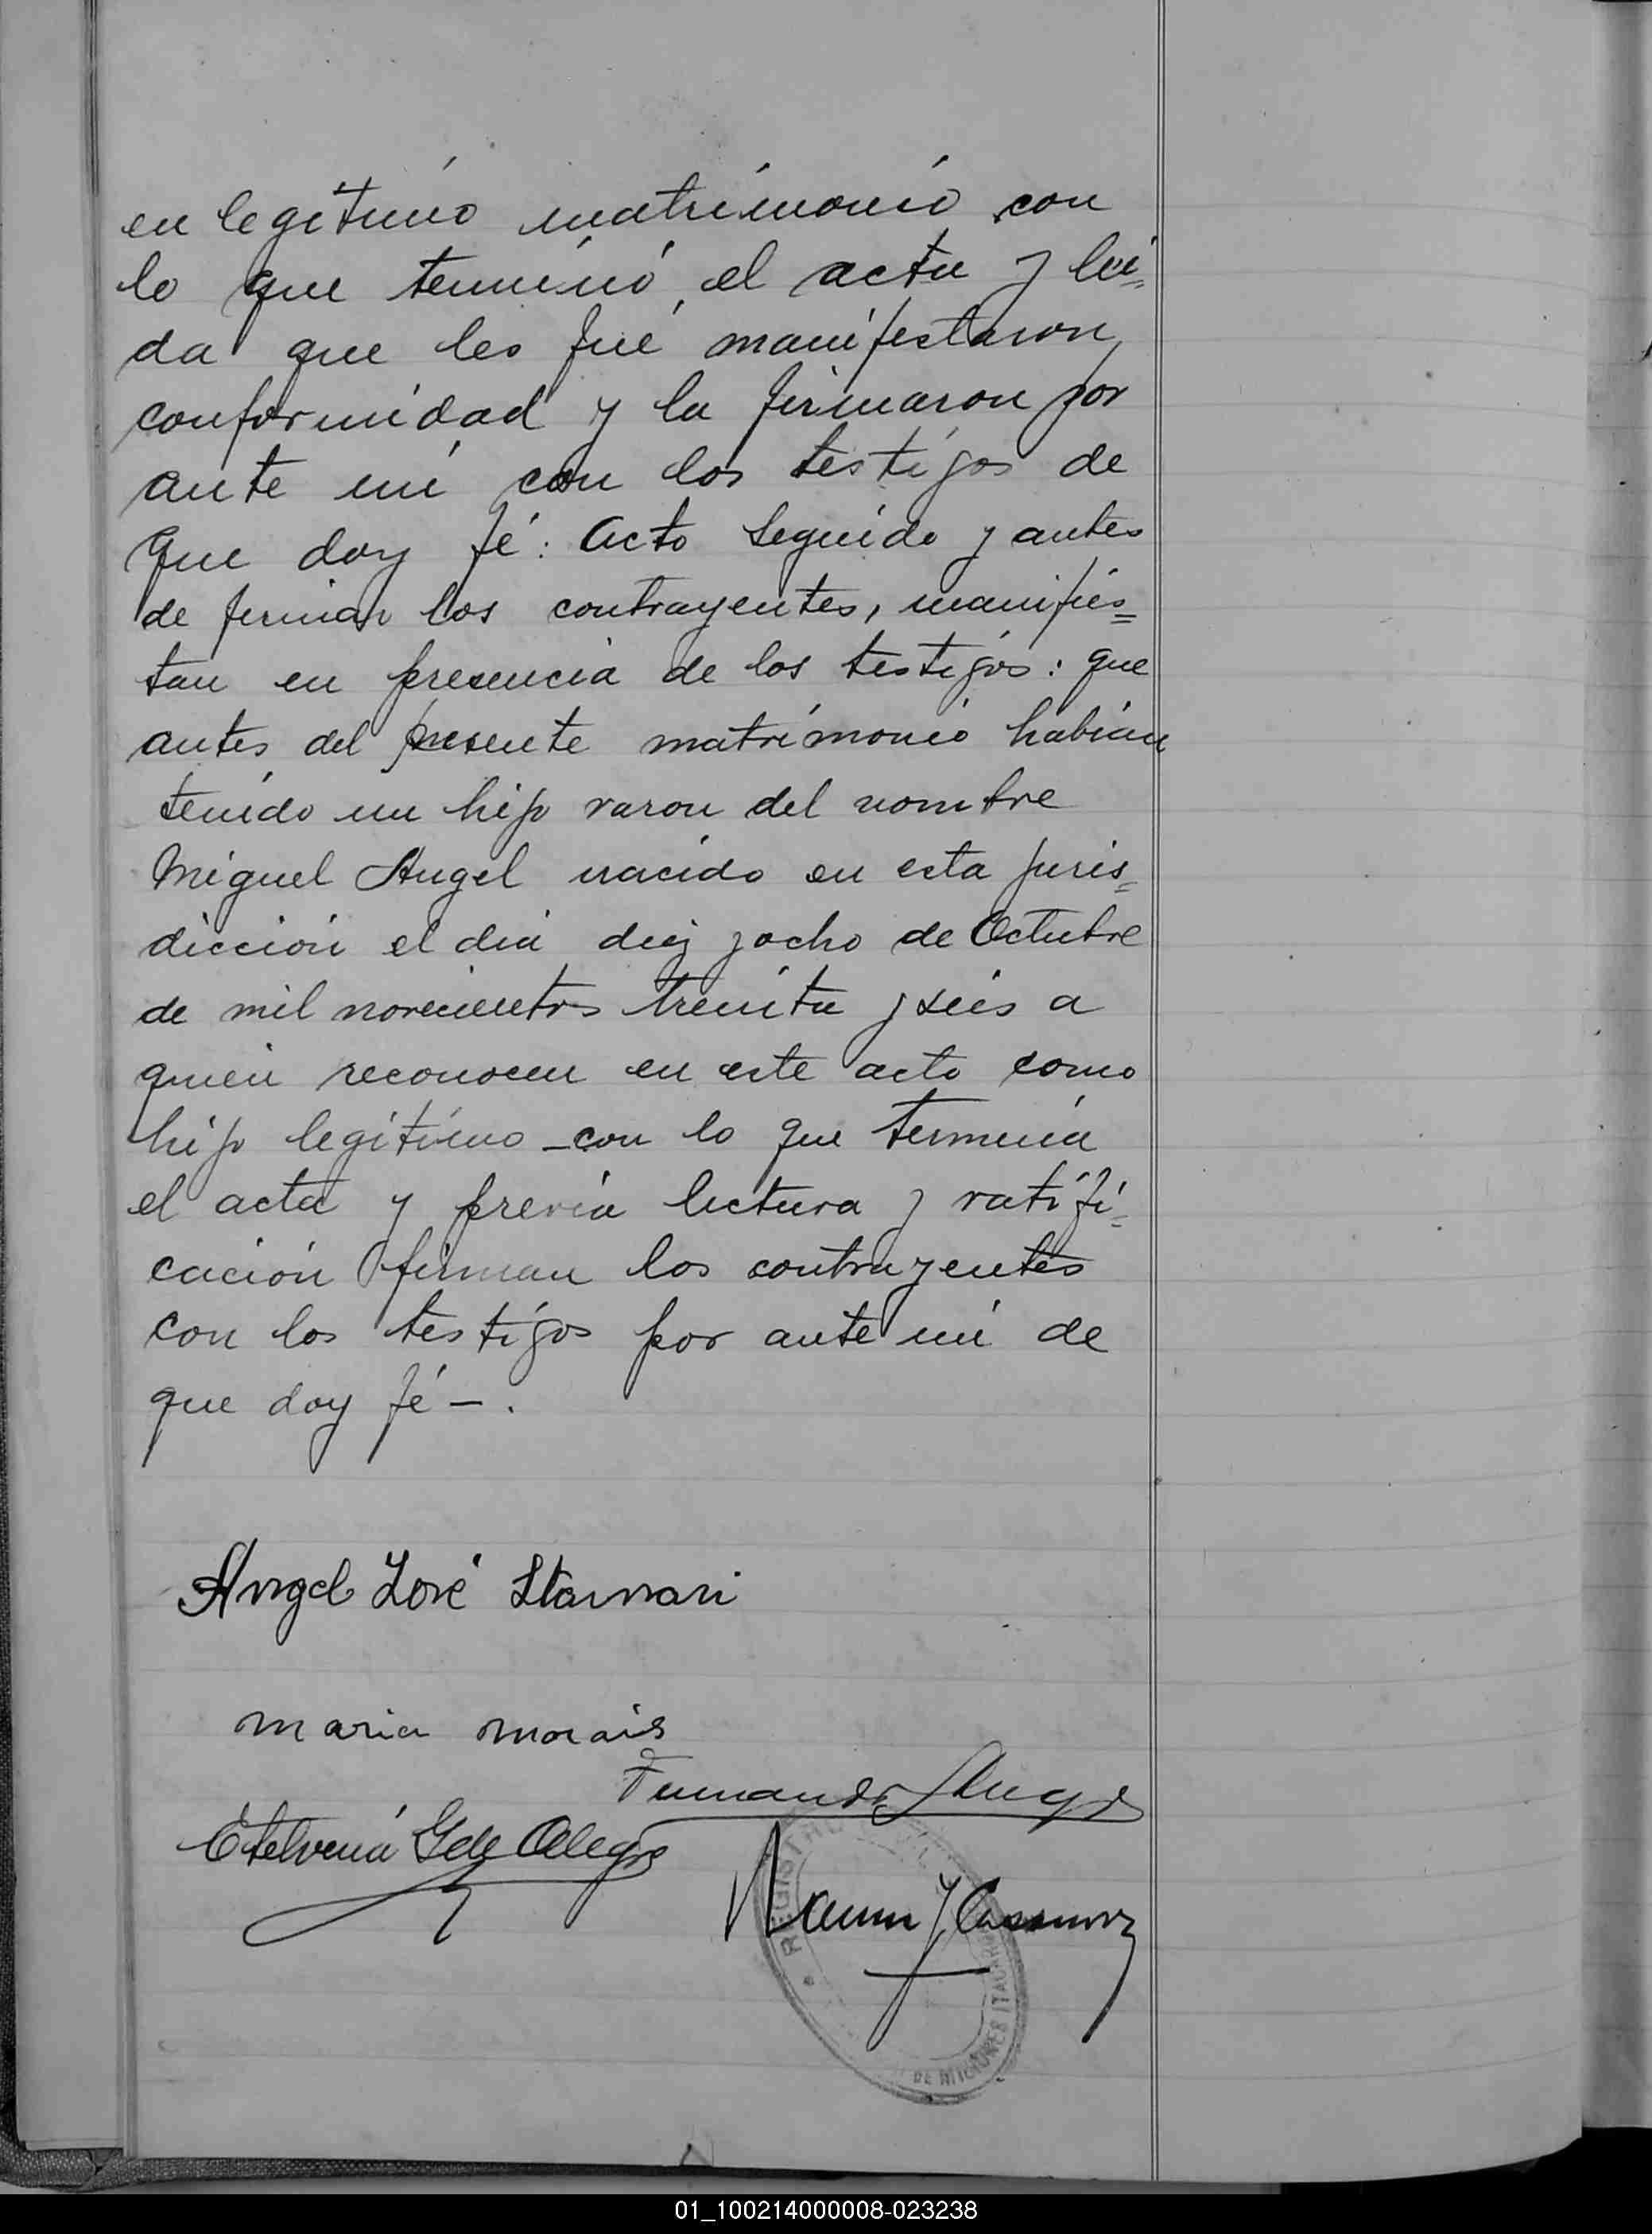 en legitimo matrimonio con
lo que terminó, el acta y leí=
da que les fué manifestaron
conformidad y la firmaron por
ante mi con los testigos de
que doy fé: Acto seguido y antes
de firmar los contrayentes, manifies=
tan en presencia de los testigos: que
antes del presente matrimonio habian
tenido un hijo varon del nombre
Miguel Angel nacido en esta juris=
diccion el dia diez y ocho de Octubre
de mil novecientos treinta y seis a
quien reconocen en este acto como
hijo legitimo - con lo que termina
el acta y previa lectura y ratifi=
cación firman los contrayentes
con los testigos por ante mi de
que doy fé - .
Angel José
maria morais
Fernando
Etelvina G de Alegre
REGISTRO
DE MISIONES
01_100214000008-023238